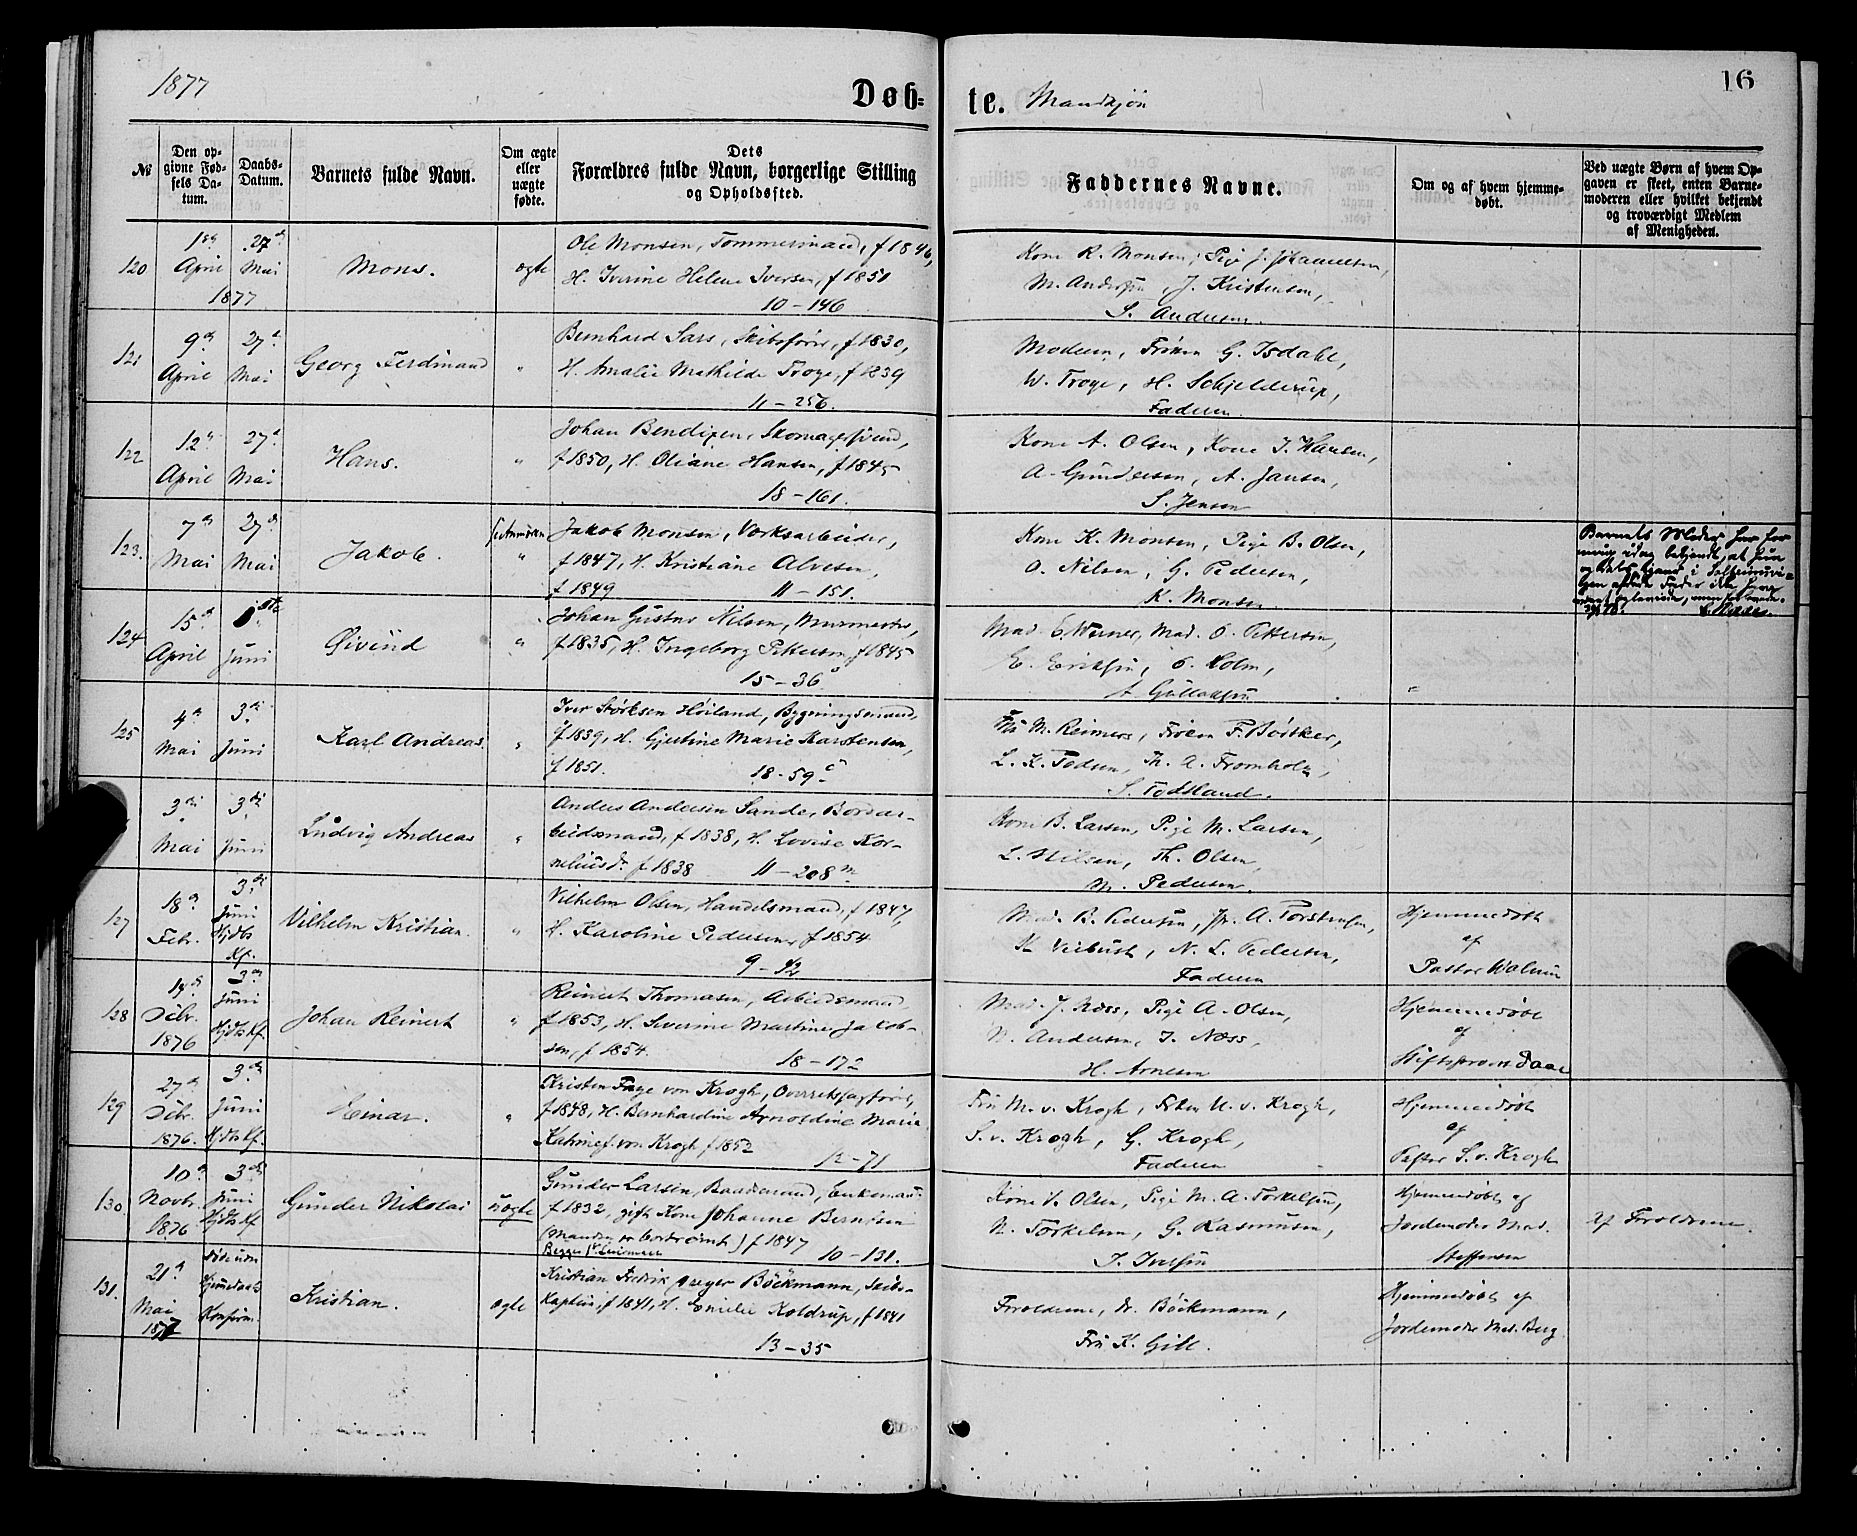 1877
Døb-
te. Mandkjøn
16
№
Den op-
givne Fød-
sels Da-
tum.
Daabs-
Datum.
Barnets fulde Navn.
Om ægte
eller
uægte
fødte.
Dets
Forældres fulde Navn, borgerlige Stilling
og Opholdssted.
Faddernes Navne.
Om og af hvem hjemme-
døbt.
Ved uægte Børn af hvem Op-
gaven er skeet, enten Barne-
moderen eller hvilket bekjendt
og troværdigt Medlem
af Menigheden.
120
April
1877
27
Mai
Mons.
ægte
Ole Monsen, Tømmermand, f 1846,
H. Iverine Helene Iversen, f 1851
10-146
Kone R. Monsen, Pige J. Johannesen,
M. Andersen, J. Kristensen,
S. Andersen.
121
9
April
27
Mai
Georg Ferdinand
"
Bernhard Sars, Skibsfører, f 1830,
H. Amalie Mathilde Troye, f 1839
11-256.
Moderen, Frøken G. Isdahl,
W. Troye, H. Schjelderup,
Faderen.
122
12
April
27
Mai
Hans.
"
Johan Bendixen, Skomagersvend,
f 1850, H. Oliane Hansen, f 1845
18-161.
Kone A. Olsen, Kone J. Hansen,
A. Gundersen, A. Jansen,
S. Jensen
123.
7
Mai
27
Mai
Jakob.
"
Jakob Monsen, Værksarbeider,
f 1847, H. Kristiane Alvesen,
f 1849 11-151.
Kone K. Monsen, Pige B. Olsen,
O. Nilsen, G. Pedersen,
K. Monsen
Barnets Moder har for
124
15
April
Juni
Øivind
"
Johan Gustav Nilsen, Murmester,
f 1835, H. Ingeborg Petersen, f 1845
15-36
Mad. C. Werner, Mad. O. Pettersen,
E. Eriksen, O. Holm,
A. Gullaksen
125
4
Mai
3
Juni
Karl Andreas.
"
Iver Størksen Høiland, Bygningsmand,
f 1839, H. Gjertine Marie Karstensen,
f 1851. 18-59
Fru M. Reimers, Frøken F. Bøtker,
L. K. Todsen, Th. A. Fromholz,
S. Todsland.
3
Mai
3
Juni
Ludvig Andreas
"
Anders Andersen Sande, Bordar-
beidsmand, f 1838, H. Lovise Kor-
neliusd. f 1838 11-208
Kone B. Larsen, Pige M. Larsen,
L. Nilsen, Th. Olsen
M. Pedersen.
127
18
Febr.
3
Juni
Hjdbs
Kf.
Vilhelm Kristian.
"
Vilhelm Olsen, Handelsmand, f 1847,
H. Karoline Pedersen, f 1854
9-42
Mad. B. Pedersen, A. Torstensen,
N. L. Pedersen,
Faderen
Hjemmedøbt
af
Pastor Walnum
128
1876
3
Juni
Hjdbs Kf.
Johan Reinert
"
Reinert Thomasen, Arbeidsmand
f 1853, H. Severine Martine Jakob-
sen, f 1854. 18-172
Mad. J. Næss, Pige A. Olsen,
N. Andersen, J. Næss,
H. Arnesen
Hjemmedøbt
af
Stiftsprovst Daae
129
27
1876.
3
Juni
Hjdbs Kf.
Einar.
"
Kristen Faye von Krogh, Overretssagfører,
f 1848, H. Bernhardine Arnoldine Marie
von Krogh f 1852
12-71
Fru M. v. Krogh, Frøken U. v. Krogh,
S. v. Krogh, G. Krogh,
Faderen
Hjemmedøbt
af
Pastor S. v. Krogh
130.
10
Novbr.
1876
3
Juni
Hjdbs Kf
Gunder Nikolai
uægte
Gunder Larsen, Baadmand, Enkeman
f 1832, gift Kone Johanne Berntsen
(Manden er bortrømt) f 1847 10-131.
Kone V. Olsen, Pige M. A. Torkelsen,
N. Torkelsen, G. Rasmussen,
J. Iversen
Hjemmedøbt af
Jordemoder Mad.
Steffensen
Af Forældrene.
131.
21
Mai
1877
død uden
Hjemmedaabs
Konfirm.
Kristian.
ægte
Kristian Fredrik Greger Böckmann, Skibs-
kaptein, f 1841, H. Emilie Koldrup, f 1841
13-35
Forældrene, Dr. Böckmann,
Fru K. Gill.
Hjemmedøbt af
Jordemoder Mad. Berg